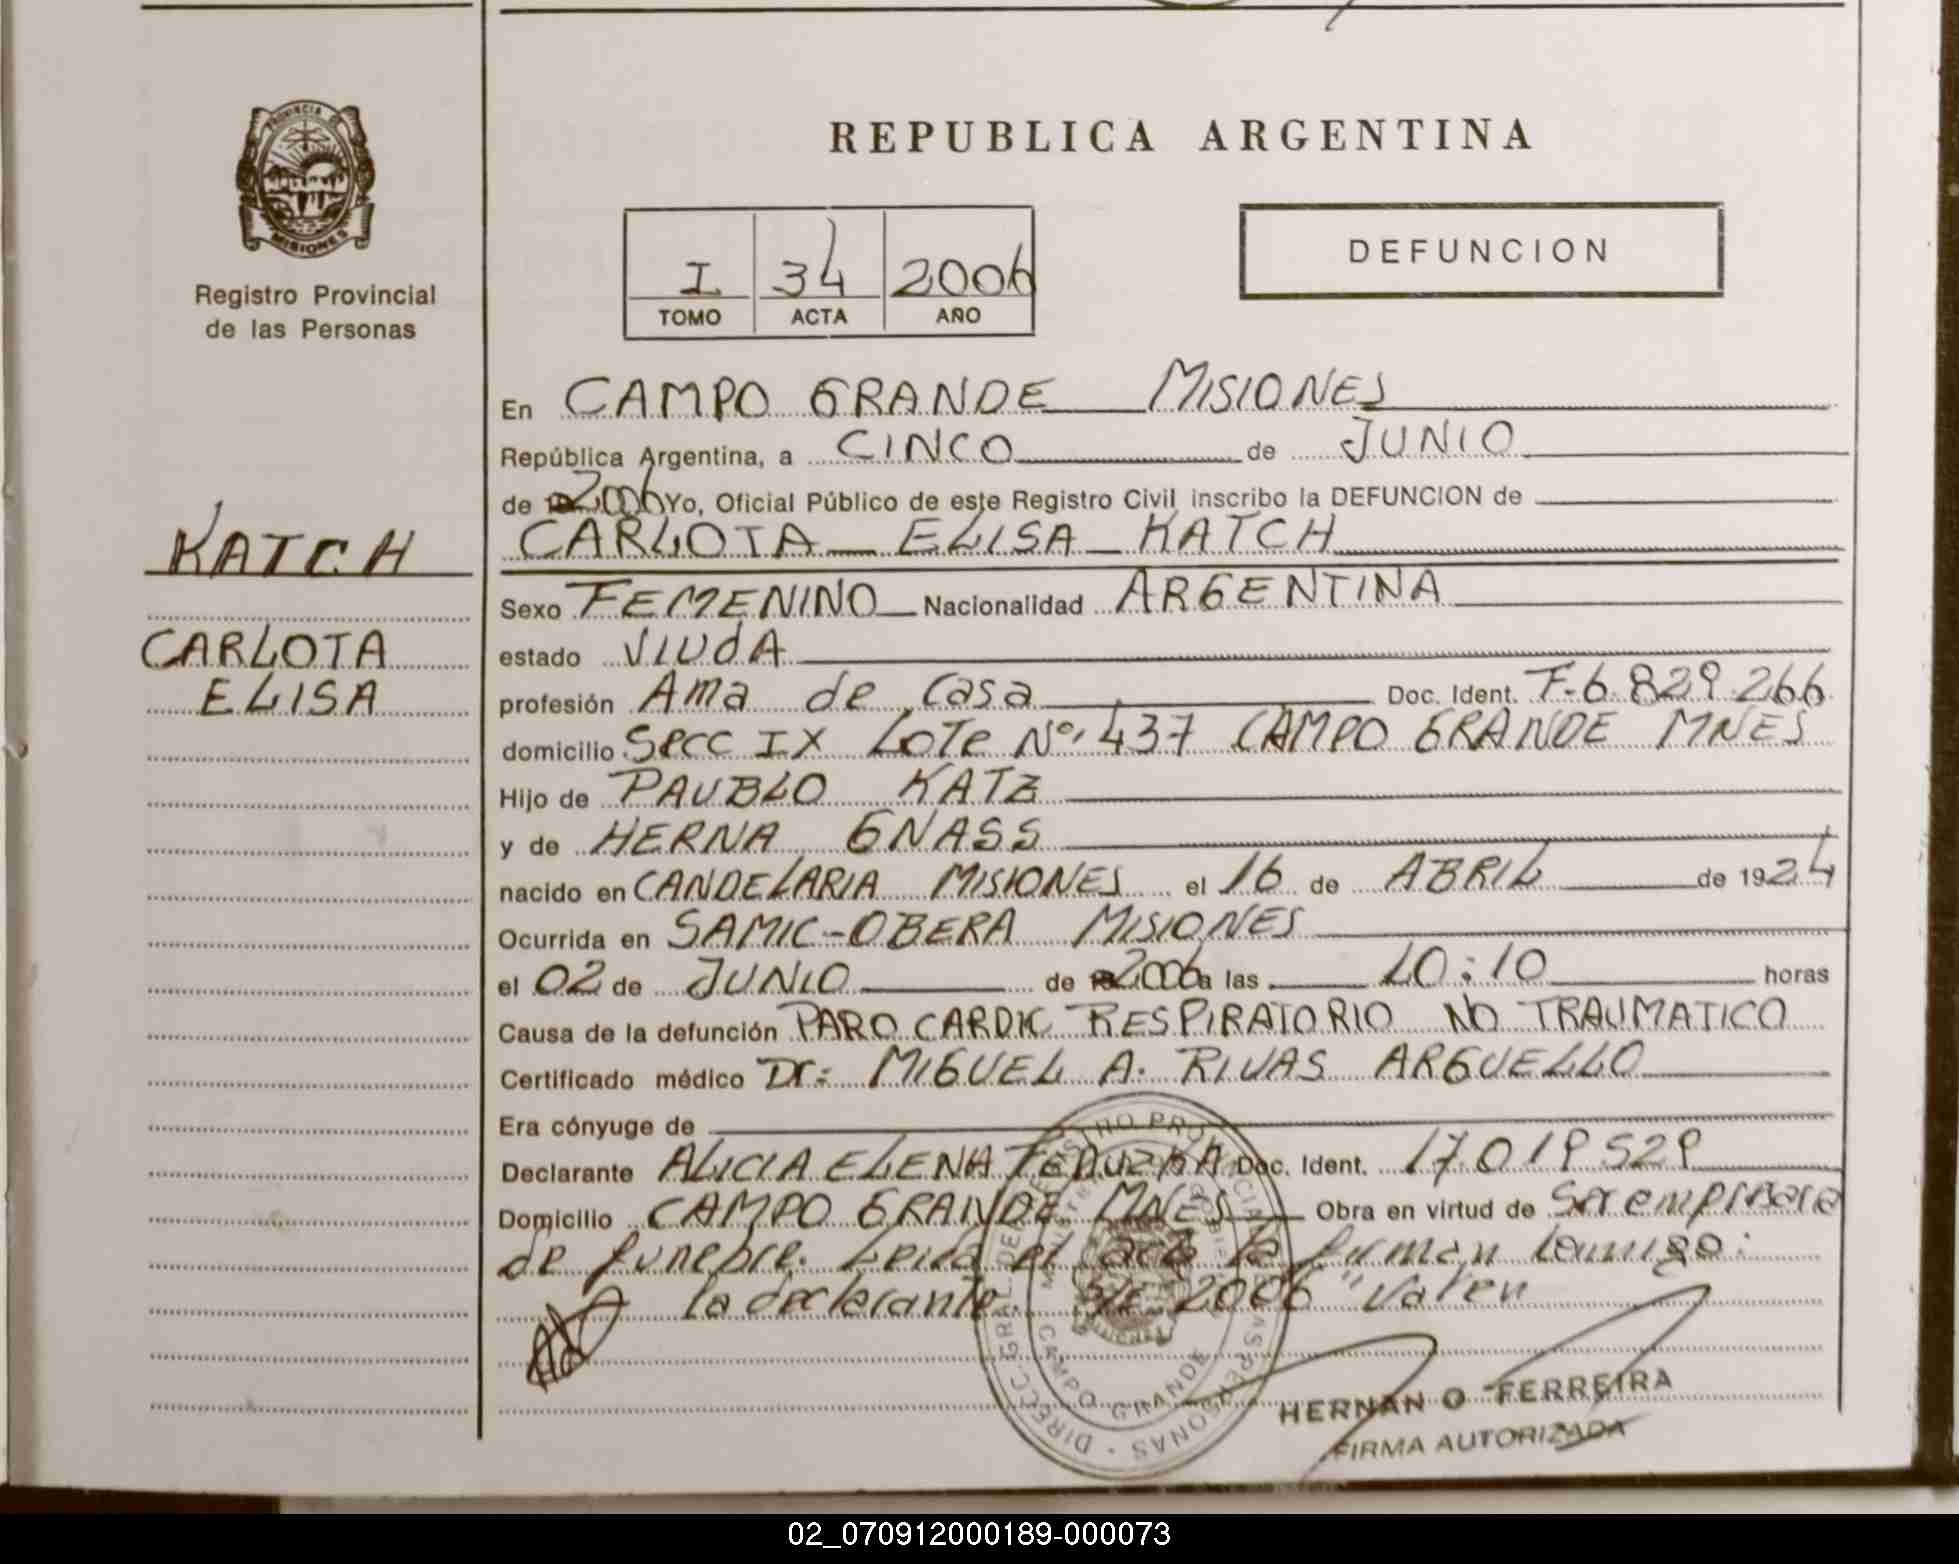 PROVINCIA DE
MISIONES
Registro Provincial
de las Personas
KATCH
CARLOTA
ELISA
REPUBLICA ARGENTINA
I 34 2006
TOMO ACTA AÑO
DEFUNCION
En CAMPO GRANDE MISIONES
República Argentina, a CINCO de JUNIO
de 2006 Yo, Oficial Público de este Registro Civil inscribo la DEFUNCION de
CARLOTA ELISA KATCH
Sexo FEMENINO Nacionalidad ARGENTINA
estado VIUdA
profesión Ama de casa Doc. Ident. F.6.829.266
domicilio Secc IX LoTe Nº 437 CAMPO GRANDE MNES
Hijo de PAUBLO KATZ
y de HERNA GNASS
nacido en CANDELARIA MISIONES el 16 de ABRIL de 1924
Ocurrida en SAMIC-OBERA MISIONES
el 02 de JUNIO de 2006 a las 10:10 horas
Causa de la defunción PARO CARDIC RESPIRATORIO NO TRAUMATICO
Certificado médico Dr: MIGUEL A. RIVAS ARGUELLO
Era cónyuge de
Declarante ALICIA ELENA Doc. Ident. 17.019529
Domicilio CAMPO GRANDE MNES Obra en virtud de Ser
de funebre. Leida el acta la firman
la declarante. 2006 "valen
DIRECC. GRAL. DEL REGISTRO PROVINCIAL DE LAS PERSONAS
CAMPO GRANDE
HERNAN O FERREIRA
FIRMA AUTORIZADA
02_070912000189-000073